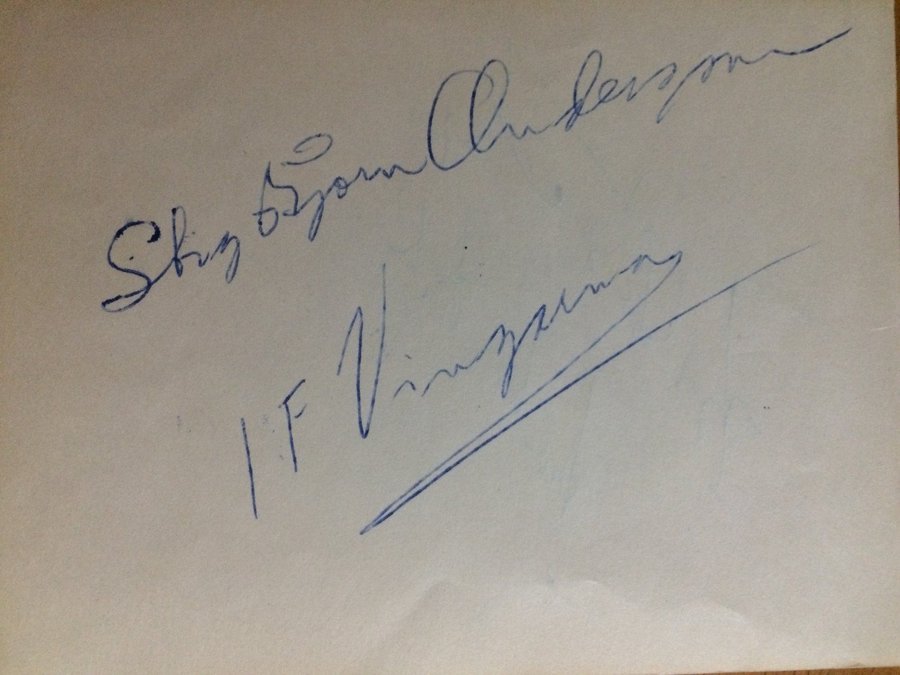 Stig Björn Andersson
I.F Vingarna